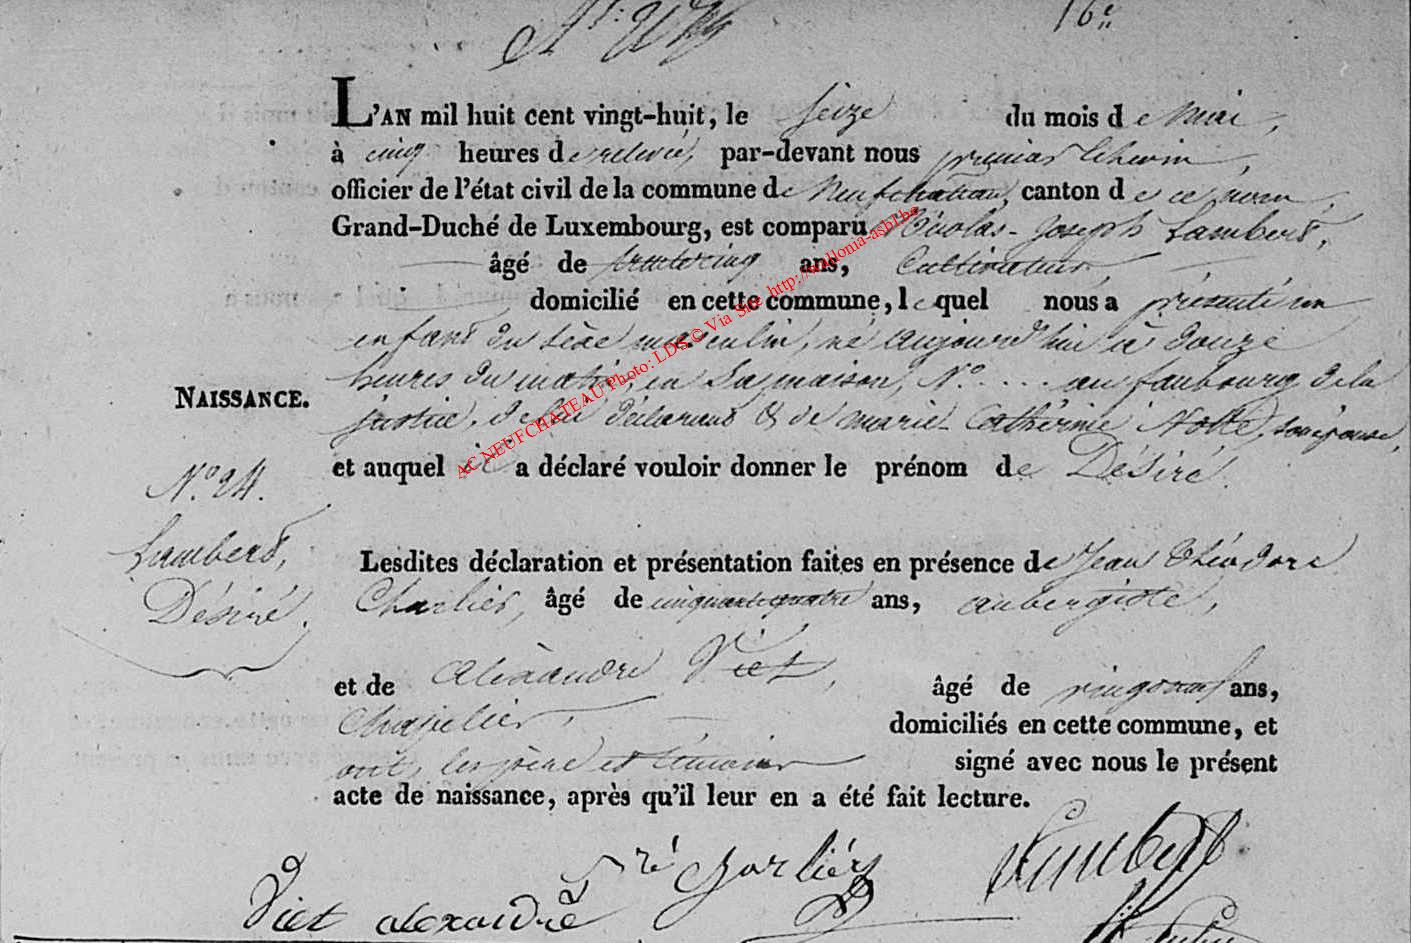 16e
L'AN mil huit cent vingt-huit, le Seize du mois de Mai,
à cinq heures de relevé, par-devant nous premier Echevin,
officier de l'état civil de la commune de Neufchateau, canton de ce nom,
Grand-Duché de Luxembourg, est comparu Nicolas-Joseph Lambert,
âgé de trente cinq ans, Cultivateur,
domicilié en cette commune, lequel nous a présenté un
enfant du sexe masculin, né aujourd'hui à douze
heures du matin, en sa maison, N° ... au faubourg de la
justice, de lui déclarant & de marie-Cathérine Notte, son épouse,
et auquel il a déclaré vouloir donner le prénom de Désiré.
NAISSANCE.
N° 24.
Lambert,
Désiré.
Lesdites déclaration et présentation faites en présence de Jean Théodore
Charlier, âgé de cinquante quatre ans, aubergiste,
et de Alexandre Viet, âgé de vingt neuf ans,
Chapelier, domiciliés en cette commune, et
ont, les père et témoins signé avec nous le présent
acte de naissance, après qu'il leur en a été fait lecture.
Lambert
Viet alexandre
AC NEUFCHATEAU Photo: LDS © Via Site http://wallonia-asbl.be